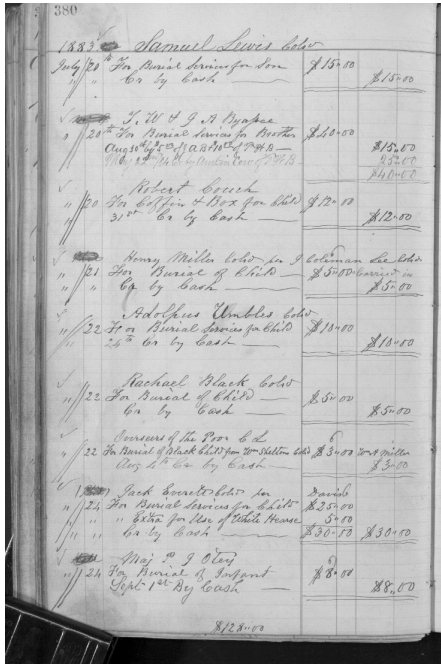 380
1883 Samuel Lewis Cold
July 20th For Burial Services for Son $15.00
" " Cr by Cash — $15.00
T. W & G A
" 20th For Burial Services for Brother $40.00
Aug 30th by $15.00
25.00
$40.00
Robert Couch
" 20 For Coffin & Box for Child $12.00
" 31st Cr by Cash — $12.00
Henry Miller Cold per J Coleman Lee Cold
" 21 For Burial of Child — $5.00 Carried in
" " Cr by Cash — $5.00
Adolphus Umbles Cold
" 22 For Burial Services for Child $10.00
24th Cr by Cash — $10.00
Rachael Black Cold
" 22 For Burial of Child — $5.00
Cr by Cash — $5.00
Overseers of the Poor C L
" 22 For Burial of Black Child from Wm Sheltons Cold $3.00 Miller
Aug 4th Cr by Cash — $3.00
Jack Everett Cold per David
" 24 For Burial Services for Child $25.00
" " " Extra for Use of White Hearse 5.00
" " Cr by Cash — $30.00 $30.00
Maj P. J Otey
" 24 For Burial of Infant $8.00
Sept 1st By Cash — $8.00
$128.00